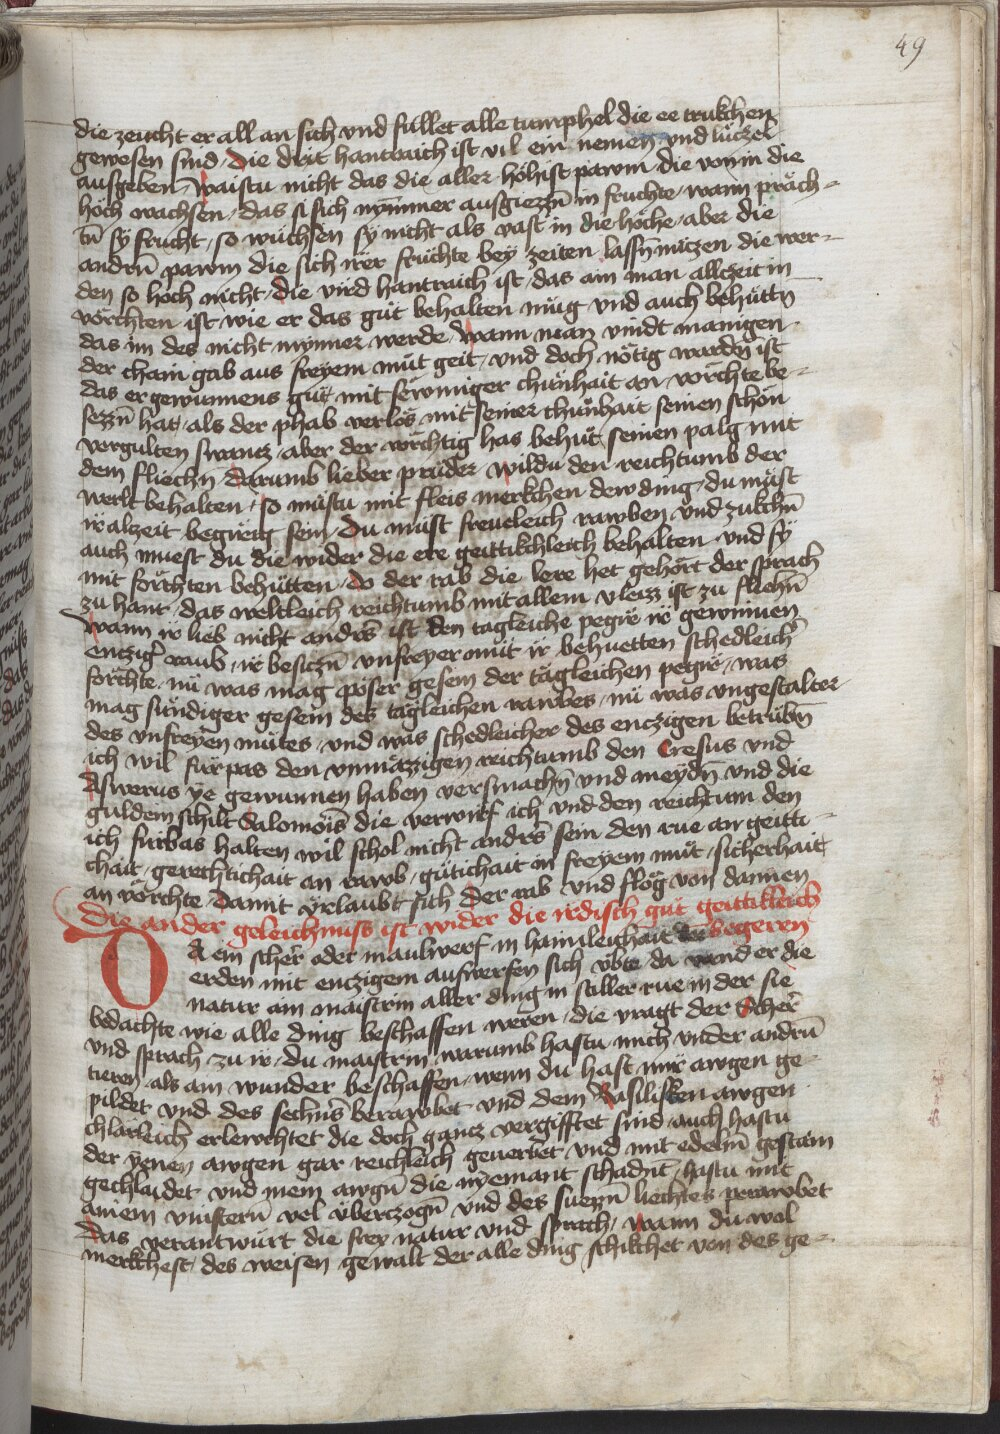 49
die zeucht er all an sich vnd füllet alle tumphel die ee trukchen
gewesen sind / die drit hantraich ist vil ein nemen vnd lüczel
ausgeben / waistu nicht das die aller höhist pawm die von in die
höch wachsen / das si sich nÿmmer ausgiezzn̄ in fruchte / wann präch-
tn̄ sÿ frucht / so wüchsen sÿ nicht als vast in die höche / aber die
andrn̄ pawm die sich irer früchte bey zeiten lassn̄ nüczen die wer-
den so hoch nicht / die vird hantraich ist / das ain man allczeit in
vörchten ist wie er das güt behalten müg vnd auch behüttn̄
das im des nicht mynner werde / wann man vindt manigen
der chain gab aus freyem müt geit / vnd doch nötig wardn̄ ist
das er gewunnens güt mit sewmiger chünhait an vörchte be-
sezzn̄ hat / als der phab verlös mit seiner chünhait seinen schön
vergulten swancz / aber der vörchtig has behüt seinen palg mit
dem fliechn̄ / darumb lieber prüder wildu den reichtumb der
werlt behalten / so müstu mit fleis merkchen dew ding / du müst
ir alzeit begreitig sein / Du müst freueleich rawben vnd zukchn̄
auch muest du die wider die ere geittikchleich behalten vnd sÿ
mit förchten behütten / do der rab die lere het gehört der sprach
zu hant / das weltleich reichtumb mit allem vleizz ist zu fliehn̄
wann ir lieb nicht andrs ist den tagleiche pegir ir gewinnen
enczig raub / ir besiczn̄ vnfreyer müt ir behuetten schedleich
förchte / nü was mag pöser gesein der tägleichen pegir / was
mag sündiger gesein des tägleichen rawbes / nü was vngestalter
des vnfreyen mütes / vnd was schedleicher des enczigen betrübn̄
ich wil fürpas den vnmäzzigen reichtumb den Cresus vnd
Aswerus ye gewunnen haben versmachn̄ vnd meydn̄ vnd die
guldein schilt Salomöis die verwirf ich / vnd den reichtum den
ich fürbas halten wil schol nicht andrs sein den rue an geitti-
chait / gerechtichait an rawb / gütichait in freyem müt / sicherhait
an vörchte / Damit vrlaubt sich der rab vnd flög von dannen
Die ander geleichnuss ist wider die irdisch güt geittikleich
begeren
Da ein scher oder maulwerf in haimleichait der
erden mit enczigem aufwerfen sich vbte / da vand er die
natur ain maistrin aller ding in stiller rue in der sie
bedachte wie alle ding beschaffen weren / die vragt der Scher
vnd sprach zu ir / du maistrin warumb hastu mich vnder andrn̄
tieren als ain wunder beschaffen / wenn du hast mir awgen ge-
pildet vnd des sechns berawbet vnd dem Basilisken awgen
chlarleich erlewchtet die doch gancz vergifftet sind / auch hastu
der yenen awgen gar reichleich geueriet vnd mit edelm gestain
gechlaidet vnd mein awgn̄ die nÿemant schadnt / hastu mit
ainem vinstern̄ vel vberczogn̄ vnd des suezzn̄ liechtes perawbet
Das verantwurt die frey natur vnd sprach / wann du wol
merkchest / des weisen gewalt der alle ding schikchet von des ge-